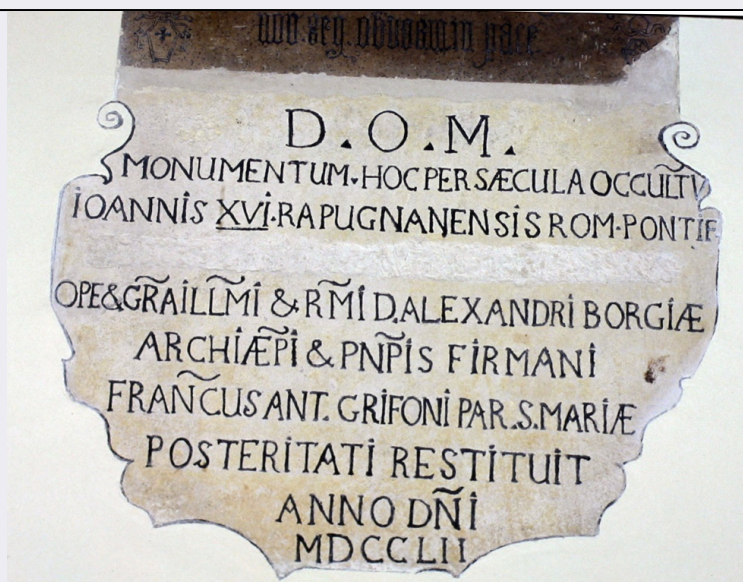 D.O.M.
MONUMENTUM·HOC PER SÆCULA OCCULT̃V
IOANNIS XVI·RAPUGNANENSIS ROM·PONTIF
OPE&GR̃A ILLM̃I & RM̃I D,ALEXANDRI BORGIÆ
ARCHIÆP̃I & PNP̃IS FIRMANI
FRANC̃US ANT. GRIFONI PAR.S.MARIÆ
POSTERITATI RESTITUIT
ANNO DÑI
MDCCLII